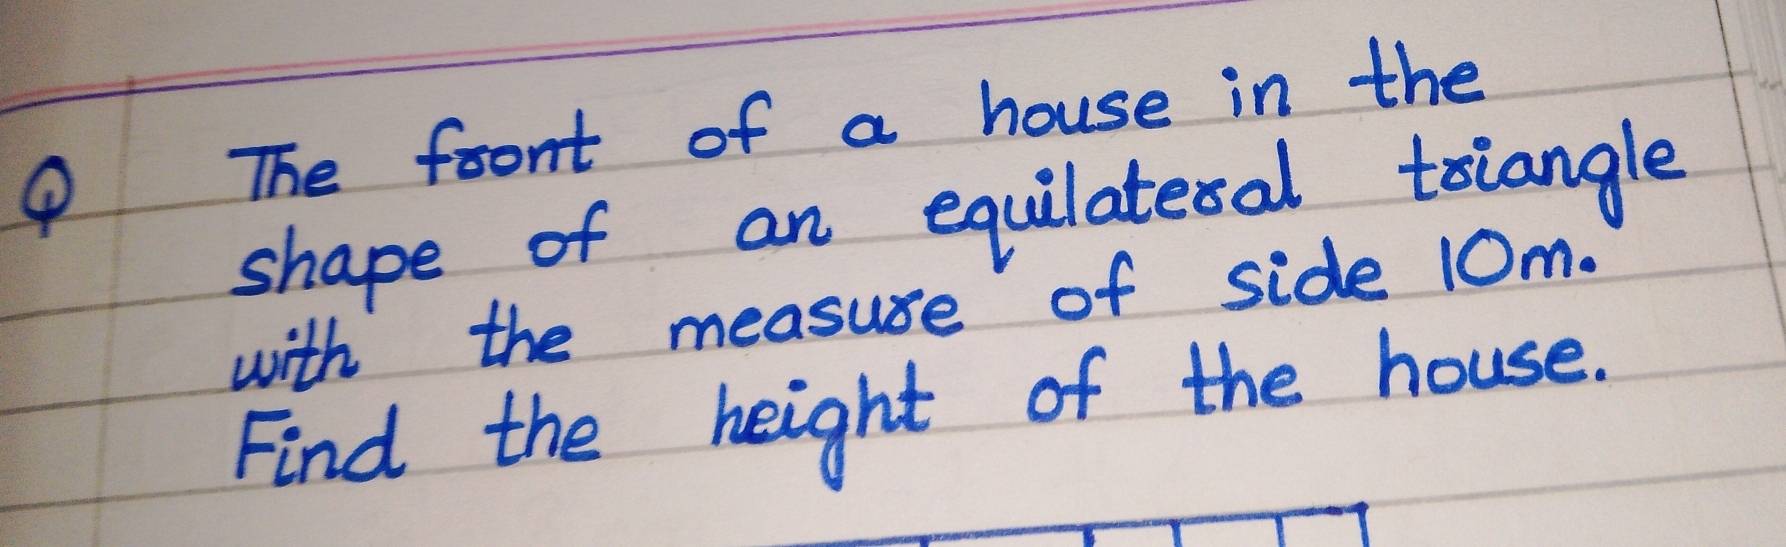 Q The front of a house in the
shape of an equilateral triangle
with the measure of side 10m.
Find the height of the house.